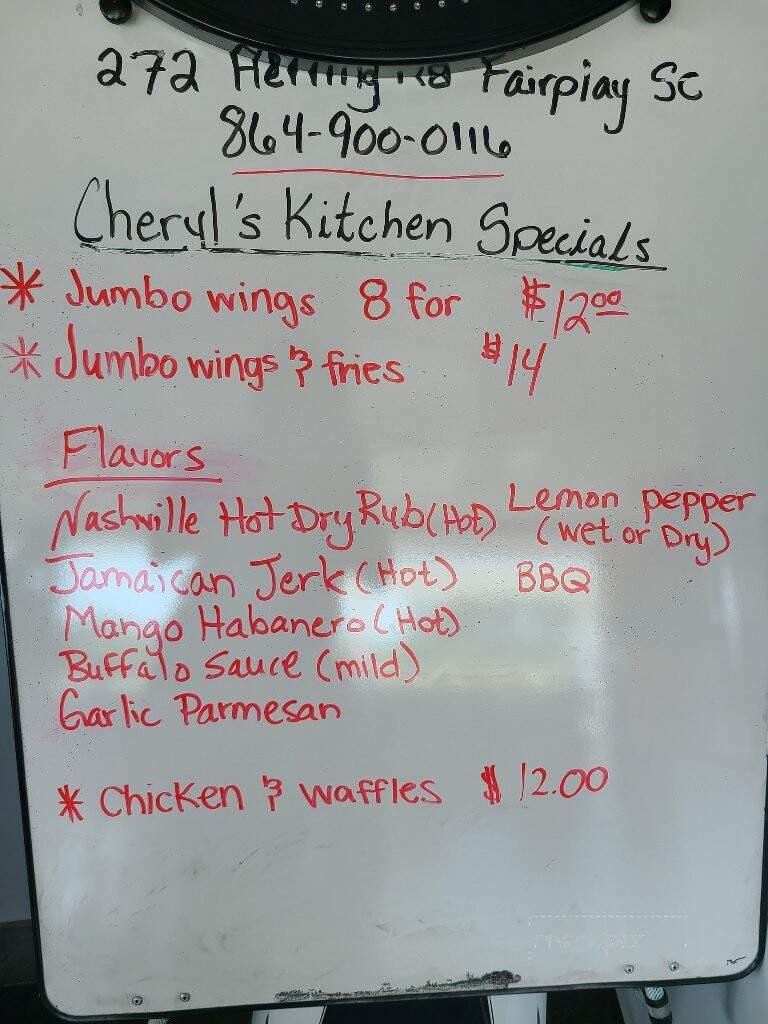 272 Fairplay SC
864-900-0116
Cheryl's Kitchen Specials
* Jumbo wings 8 for $12.00
* Jumbo wings & fries $14
Flavors
Nashville Hot Dry Rub (Hot) Lemon pepper
(wet or Dry)
Jamaican Jerk (Hot) BBQ
Mango Habanero (Hot)
Buffalo Sauce (mild)
Garlic Parmesan
* Chicken & waffles $12.00